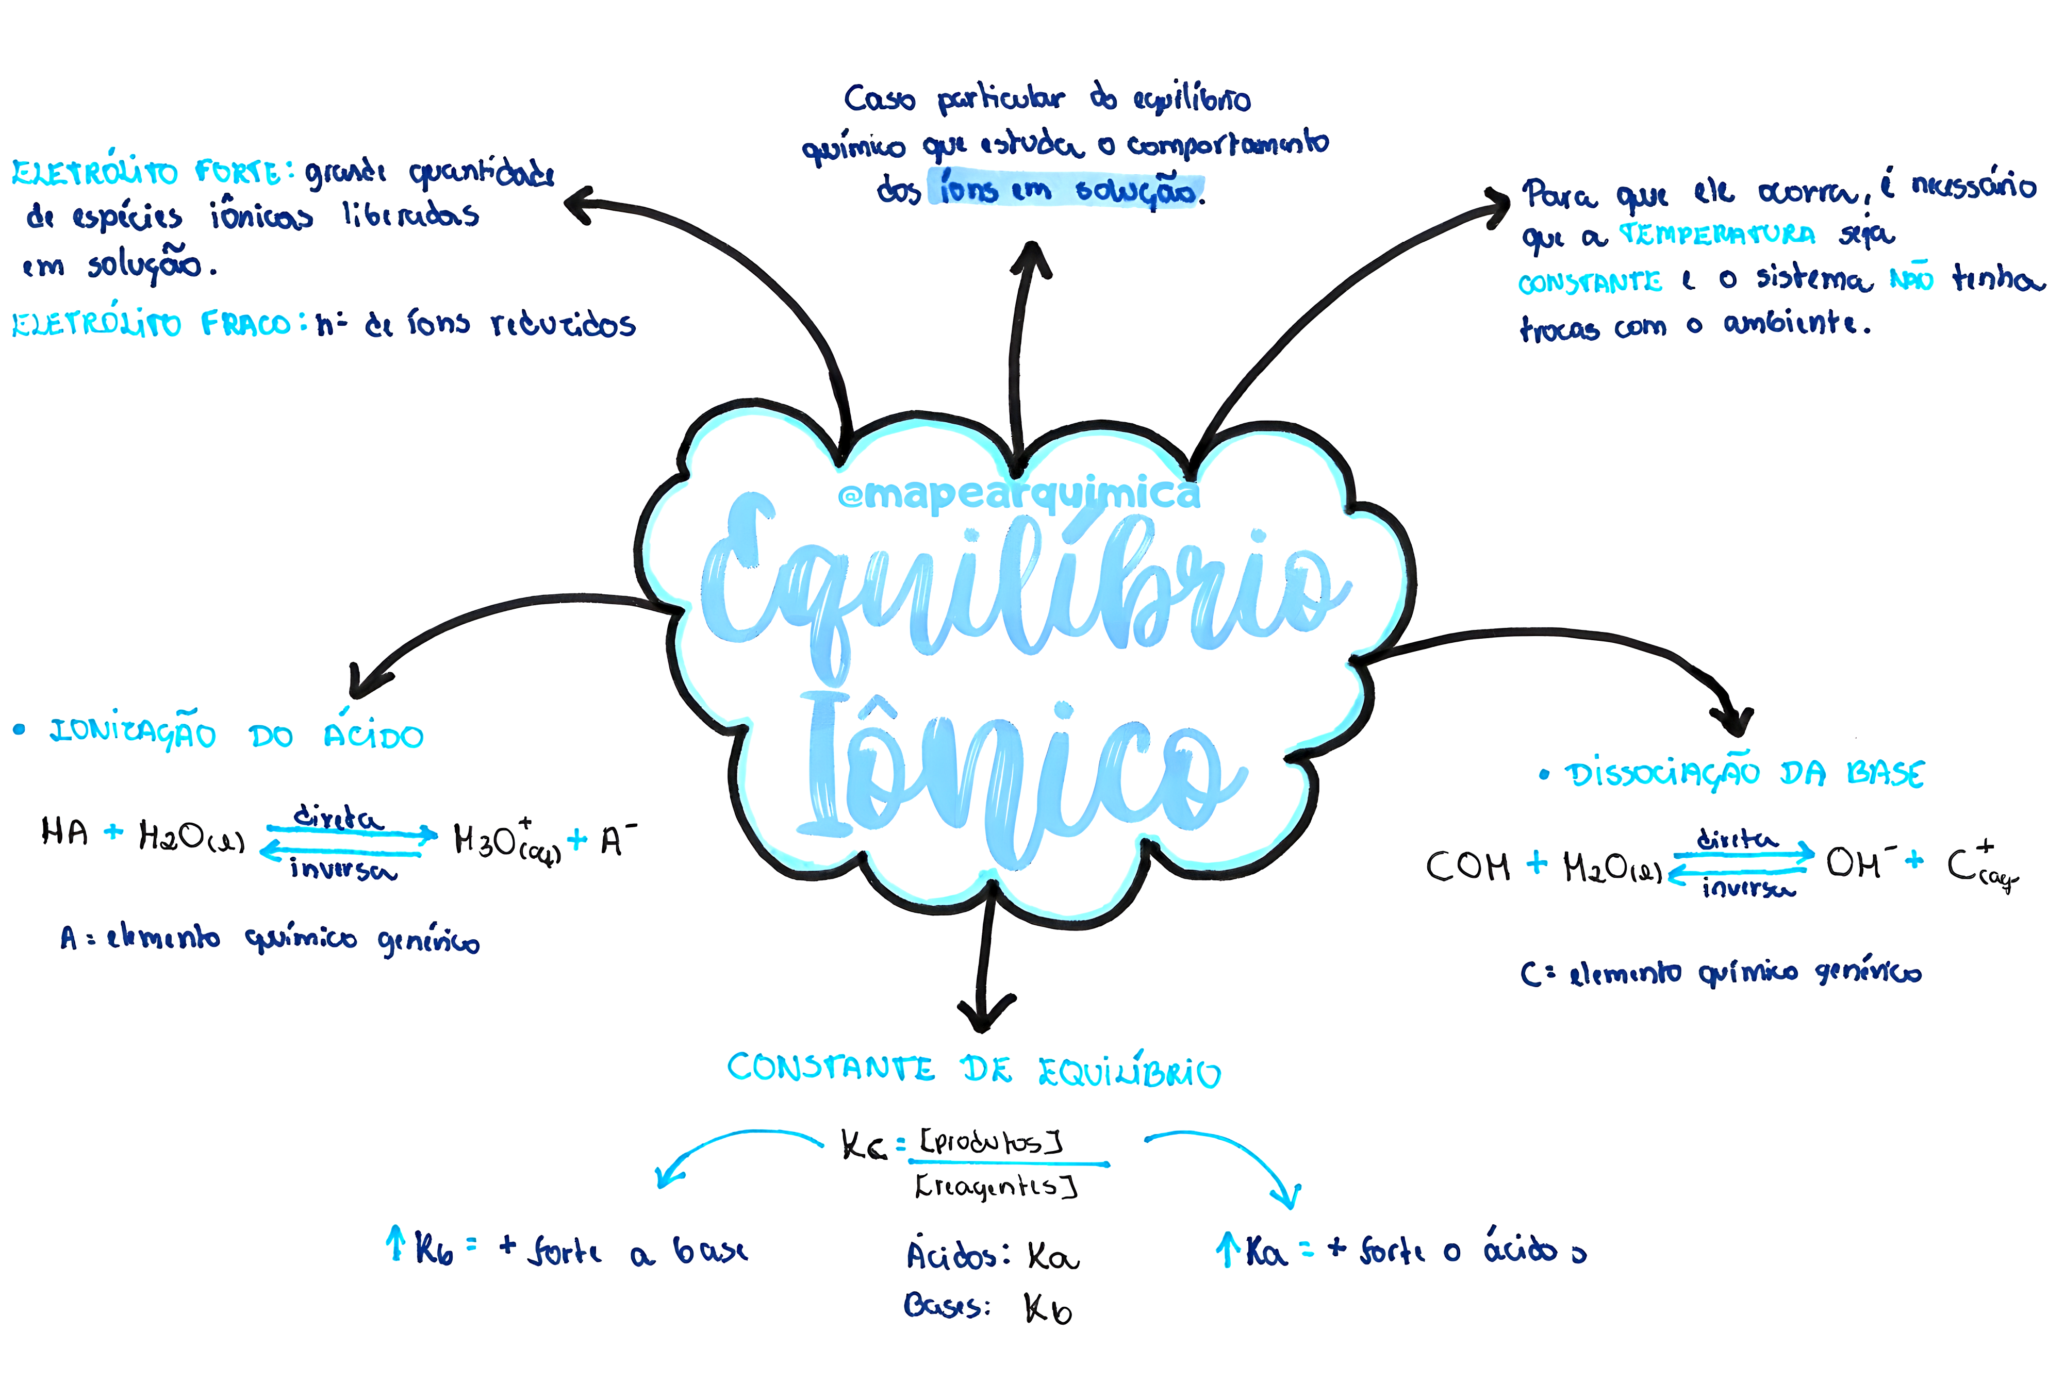 Caso particular do equilíbrio
químico que estuda o comportamento
dos íons em solução.
ELETRÓLITO FORTE: grande quantidade
de espécies iônicas liberadas
em solução.
ELETRÓLITO FRACO: nº de íons reduzidos
Para que ele ocorra, é necessário
que a TEMPERATURA seja
CONSTANTE e o sistema NÃO tenha
trocas com o ambiente.
@mapearquimica
Equilíbrio
Iônico
• IONIZAÇÃO DO ÁCIDO
HA + H2O(l) direta H3O+(aq) + A-
inversa
A = elemento químico genérico
• DISSOCIAÇÃO DA BASE
COH + H2O(l) direta OH- + C+(aq
inversa
C = elemento químico genérico
CONSTANTE DE EQUILÍBRIO
Kc = [produtos]
[reagentes]
↑ Kb = + forte a base
Ácidos: Ka
Bases: Kb
↑ Ka = + forte o ácido